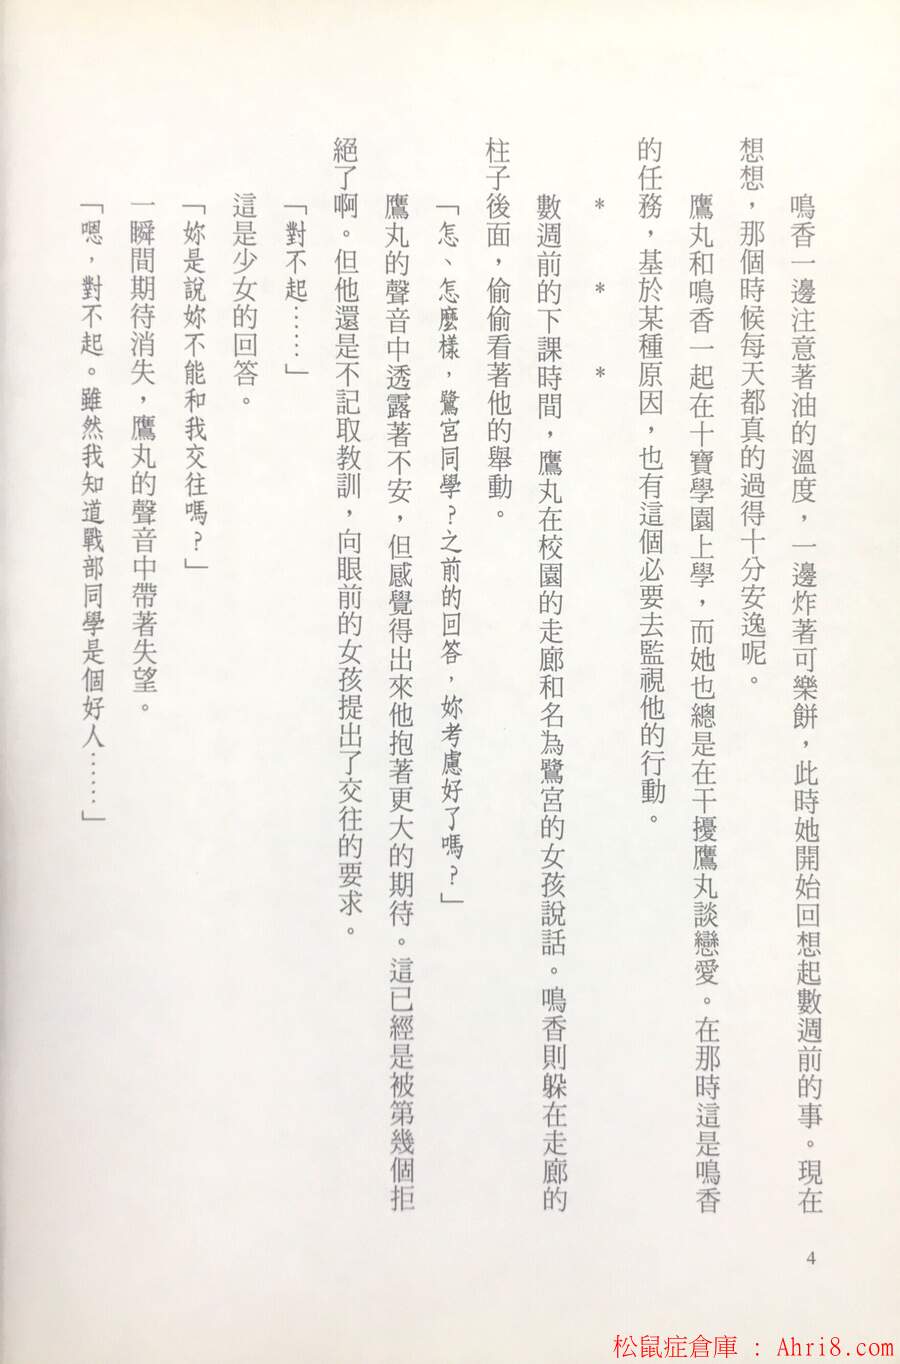 鳴香一邊注意著油的溫度，一邊炸著可樂餅，此時她開始回想起數週前的事。現在
想想，那個時候每天都真的過得十分安逸呢。
鷹丸和鳴香一起在十寶學園上學，而她也總是在干擾鷹丸談戀愛。在那時這是鳴香
的任務，基於某種原因，也有這個必要去監視他的行動。
＊　＊　＊
數週前的下課時間，鷹丸在校園的走廊和名為鷺宮的女孩說話。鳴香則躲在走廊的
柱子後面，偷偷看著他的舉動。
「怎、怎麼樣，鷺宮同學？之前的回答，妳考慮好了嗎？」
鷹丸的聲音中透露著不安，但感覺得出來他抱著更大的期待。這已經是被第幾個拒
絕了啊。但他還是不記取教訓，向眼前的女孩提出了交往的要求。
「對不起……」
這是少女的回答。
「妳是說妳不能和我交往嗎？」
一瞬間期待消失，鷹丸的聲音中帶著失望。
「嗯，對不起。雖然我知道戰部同學是個好人……」
4
松鼠症倉庫 : Ahri8.com